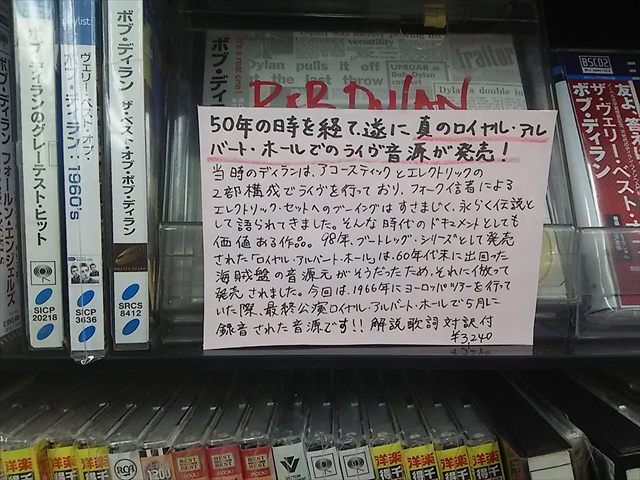 ボブ・ディランのグレーテスト・ヒット
SICP
20218
playlist:
ヴェリー・ベスト・オブ・
ボブ・ディラン：1960's
SICP
3636
ボブ・ディラン ザ・ベスト・オブ・ボブ・ディラン
SRCS
8412
フォールン・エンジェルズ
versatility
Dylan pulls it off
at the last throw
UPROAR at
traitor
BOB DYLAN
50年の日時を経て、遂に真のロイヤル・アル
バート・ホールでのライヴ音源が発売！
当時のディランは、アコースティックとエレクトリックの
2部構成でライヴを行っており、フォーク信者による
エレクトリック・セットへのブーイングはすさまじく、永らく伝説と
して語られてきました。そんな時代のドキュメントとしても
価値ある作品。98年、ブートレッグ・シリーズとして発売
された「ロイヤル・アルバート・ホール」は、60年代末に出回った
海賊盤の音源元がそうだったため、それに倣って
発売されました。今回は、1966年にヨーロッパツアーを行って
いた際、最終公演ロイヤル・アルバート・ホールで5月に
録音された音源です!! 解説歌詞対訳付
¥3,240
BSCD2
ザ・ヴェリー・ベスト・オブ・
ボブ・ディラン
洋楽
洋楽
洋楽
RCA
1200
BEST
BEST
BEST
VICTOR
洋楽
洋楽
洋楽
洋楽